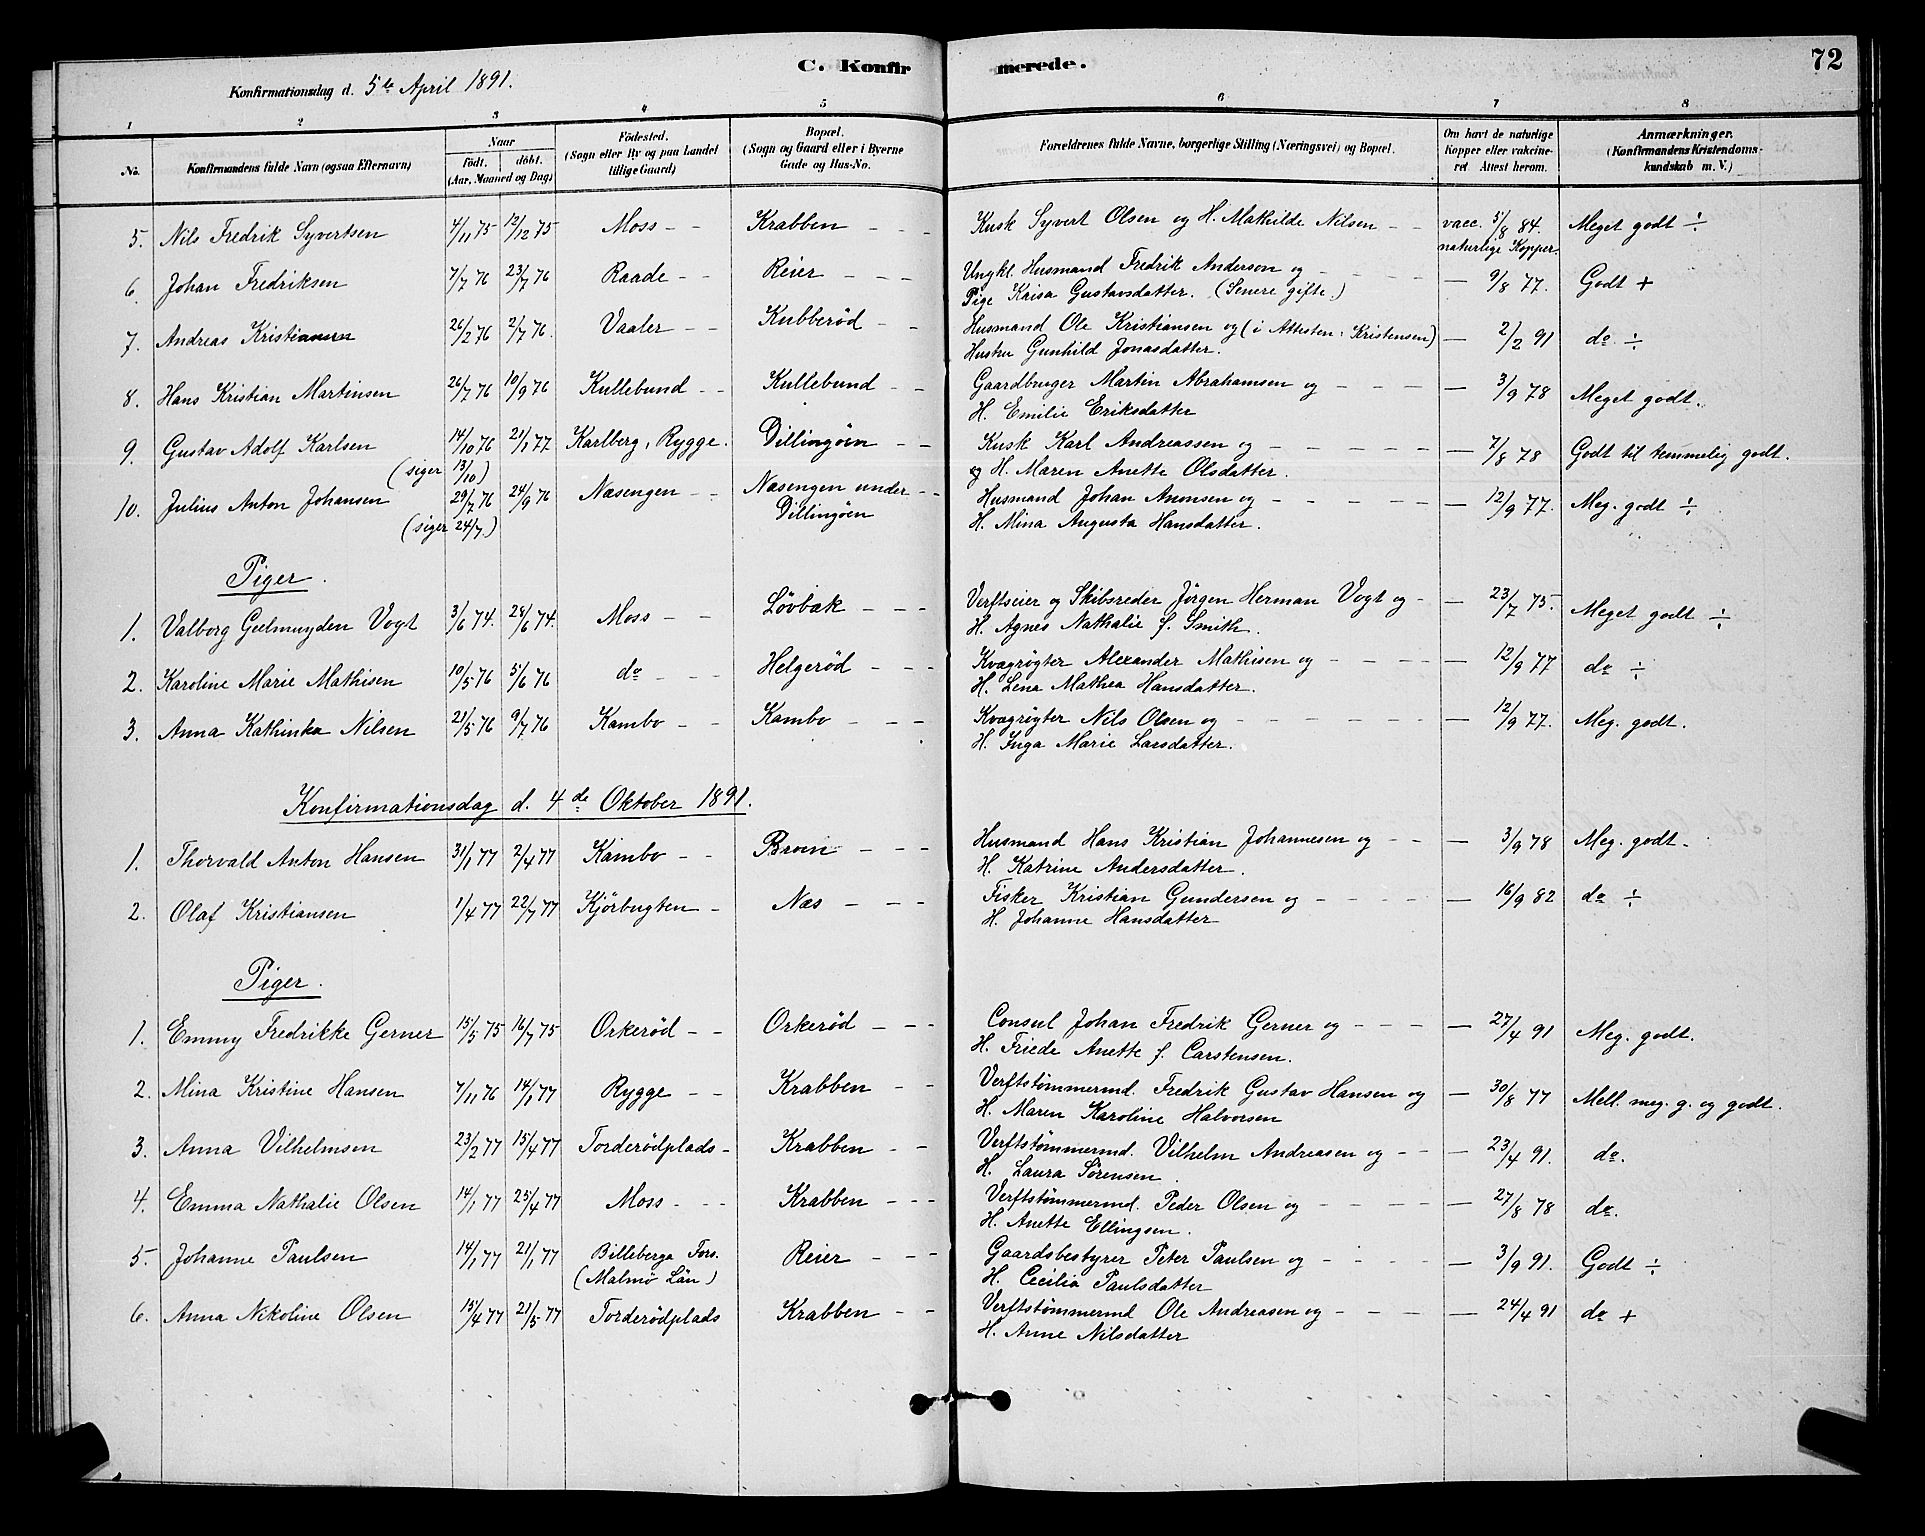 C. Konfirmerede.
72
Konfirmationsdag d. 5te April 1891.
1 2 3 4 5 6 7 8
No. Konfirmandens fulde Navn (ogsaa Efternavn) Naar födt. döbt. (Aar, Maaned og Dag) Födested. (Sogn eller By og paa Landet tillige Gaard) Bopæl. (Sogn og Gaard eller i Byerne Gade og Hus-No. Forældrenes fulde Navne, borgerlige Stilling (Næringsvei) og Bopæl. Om havt de naturlige Kopper eller vakcineret Attest herom. Anmærkninger. (Konfirmandens Kristendomskundskab m. V.)
5. Nils Fredrik Syvertsen 4/11 75 12/12 75 Moss Krabben Kusk Syvert Olsen og H. Mathilde Nilsen vacc. 5/8 84. Meget godt ÷
naturlige Kopper.
6. Johan Fredriksen 7/7 76 23/7 76 Raade Reier Ungkl. Husmand Fredrik Anderson og — 9/8 77. Godt +
Pige Kaisa Gustavsdatter. (Senere gifte.)
7. Andreas Kristiansen 26/2 76 2/7 76. Vaaler Kubberød Husmand Ole Kristiansen og (i Attesten: Kristensen) — 2/2 91 do ÷
Hustru Gunhild Jonasdatter.
8. Hans Kristian Martinsen 26/7 76 10/9 76 Kullebund Kullebund Gaardbruger Martin Abrahamsen og — 3/9 78 Meget godt.
H. Emilie Eriksdatter
9. Gustav Adolf Karlsen 14/10 76 21/1 77 Karlberg, Rygge. Dillingøen Kusk Karl Andreassen og — 7/8 78 Godt til temmelig godt.
(siger 13/10) og H. Maren Anette Olsdatter.
10. Julius Anton Johansen 29/7 76 24/9 76 Næsengen Næsengen under Dillingøen Husmand Johan Anonsen og — 12/9 77. Meg. godt ÷
(siger 24/7.) H. Mina Augusta Hansdatter.
Piger.
1. Valborg Geelmuyden Vogt 3/6 74. 28/6 74. Moss Løvbak Verftseier og Skibsreder Jørgen Herman Vogt og — 23/7 75. Meget godt ÷
H. Agnes Nathalie f. Smith.
2. Karoline Marie Mathisen 10/5 76 5/6 76 do Helgerød Kvægrøgter Alexander Mathisen og — 12/9 77 do ÷
H. Lena Mathea Hansdatter.
3. Anna Kathinka Nilsen 21/5 76 9/7 76 Kambo Kambo Kvægrøgter Nils Olsen og — 12/9 77. Meg. godt.
H. Inga Marie Larsdatter.
Konfirmationsdag d. 4de Oktober 1891.
1. Thorvald Anton Hansen 31/1 77 2/4 77 Kambo Broen Husmand Hans Kristian Johannesen og — 3/9 78 Meg. godt.
H. Katrine Andersdatter.
2. Olaf Kristiansen 1/4 77 22/7 77 Kjörbugten Næs Fisker Kristian Gundersen og — 16/9 82 do ÷
H. Johanne Hansdatter
Piger.
1. Emmy Fredrikke Gerner 15/5 75 16/7 75 Orkerød Orkerød Consul Johan Fredrik Gerner og — 27/4 91 Meg. godt.
H. Friede Anette f. Carstensen.
2. Mina Kristine Hansen 7/11 76 14/1 77 Rygge Krabben Verftstømmermd. Fredrik Gustav Hansen og — 30/8 77 Mell. meg. g. og godt.
H. Maren Karoline Halvorsen
3. Anna Vilhelmsen 23/2 77 15/4 77 Torderødplads Krabben Verftstømmermd. Vilhelm Andreasen og — 23/4 91. do.
H. Laura Sørensen.
4. Emma Nathalie Olsen 14/1 77 25/4 77 Moss Krabben Verftstømmermd. Peder Olsen og — 27/8 78 do.
H. Anette Ellingsen.
5. Johanne Paulsen 14/1 77 21/1 77 Billeberga Fors. Reier Gaardsbestyrer Peter Paulsen og — 3/9 91. Godt ÷
(Malmö Län) H. Cecilia Paulsdatter
6. Anna Nikoline Olsen 15/4 77 21/5 77 Torderødplads Krabben Verftstømmermd Ole Andreasen og — 24/4 91 do +
H. Anne Nilsdatter